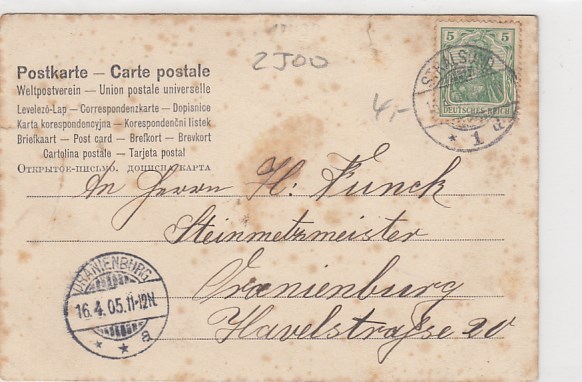 2500
Postkarte — Carte postale
Weltpostverein — Union postale universelle
Levelező-Lap — Correspondenzkarte — Dopisnice
Karta korespondencyjna — Korespondenční listek
Briefkaart — Post card — Brefkort — Brevkort
Cartolina postale — Tarjeta postal
Открытое-письмо. дописна карта
4,-
5 5
DEUTSCHES REICH
STRALSUND
* 1 a
An Herrn H. Funck
Steinmetzmeister
Oranienburg
Havelstraße 20
ORANIENBURG
16.4.05.11-12N.
* * a